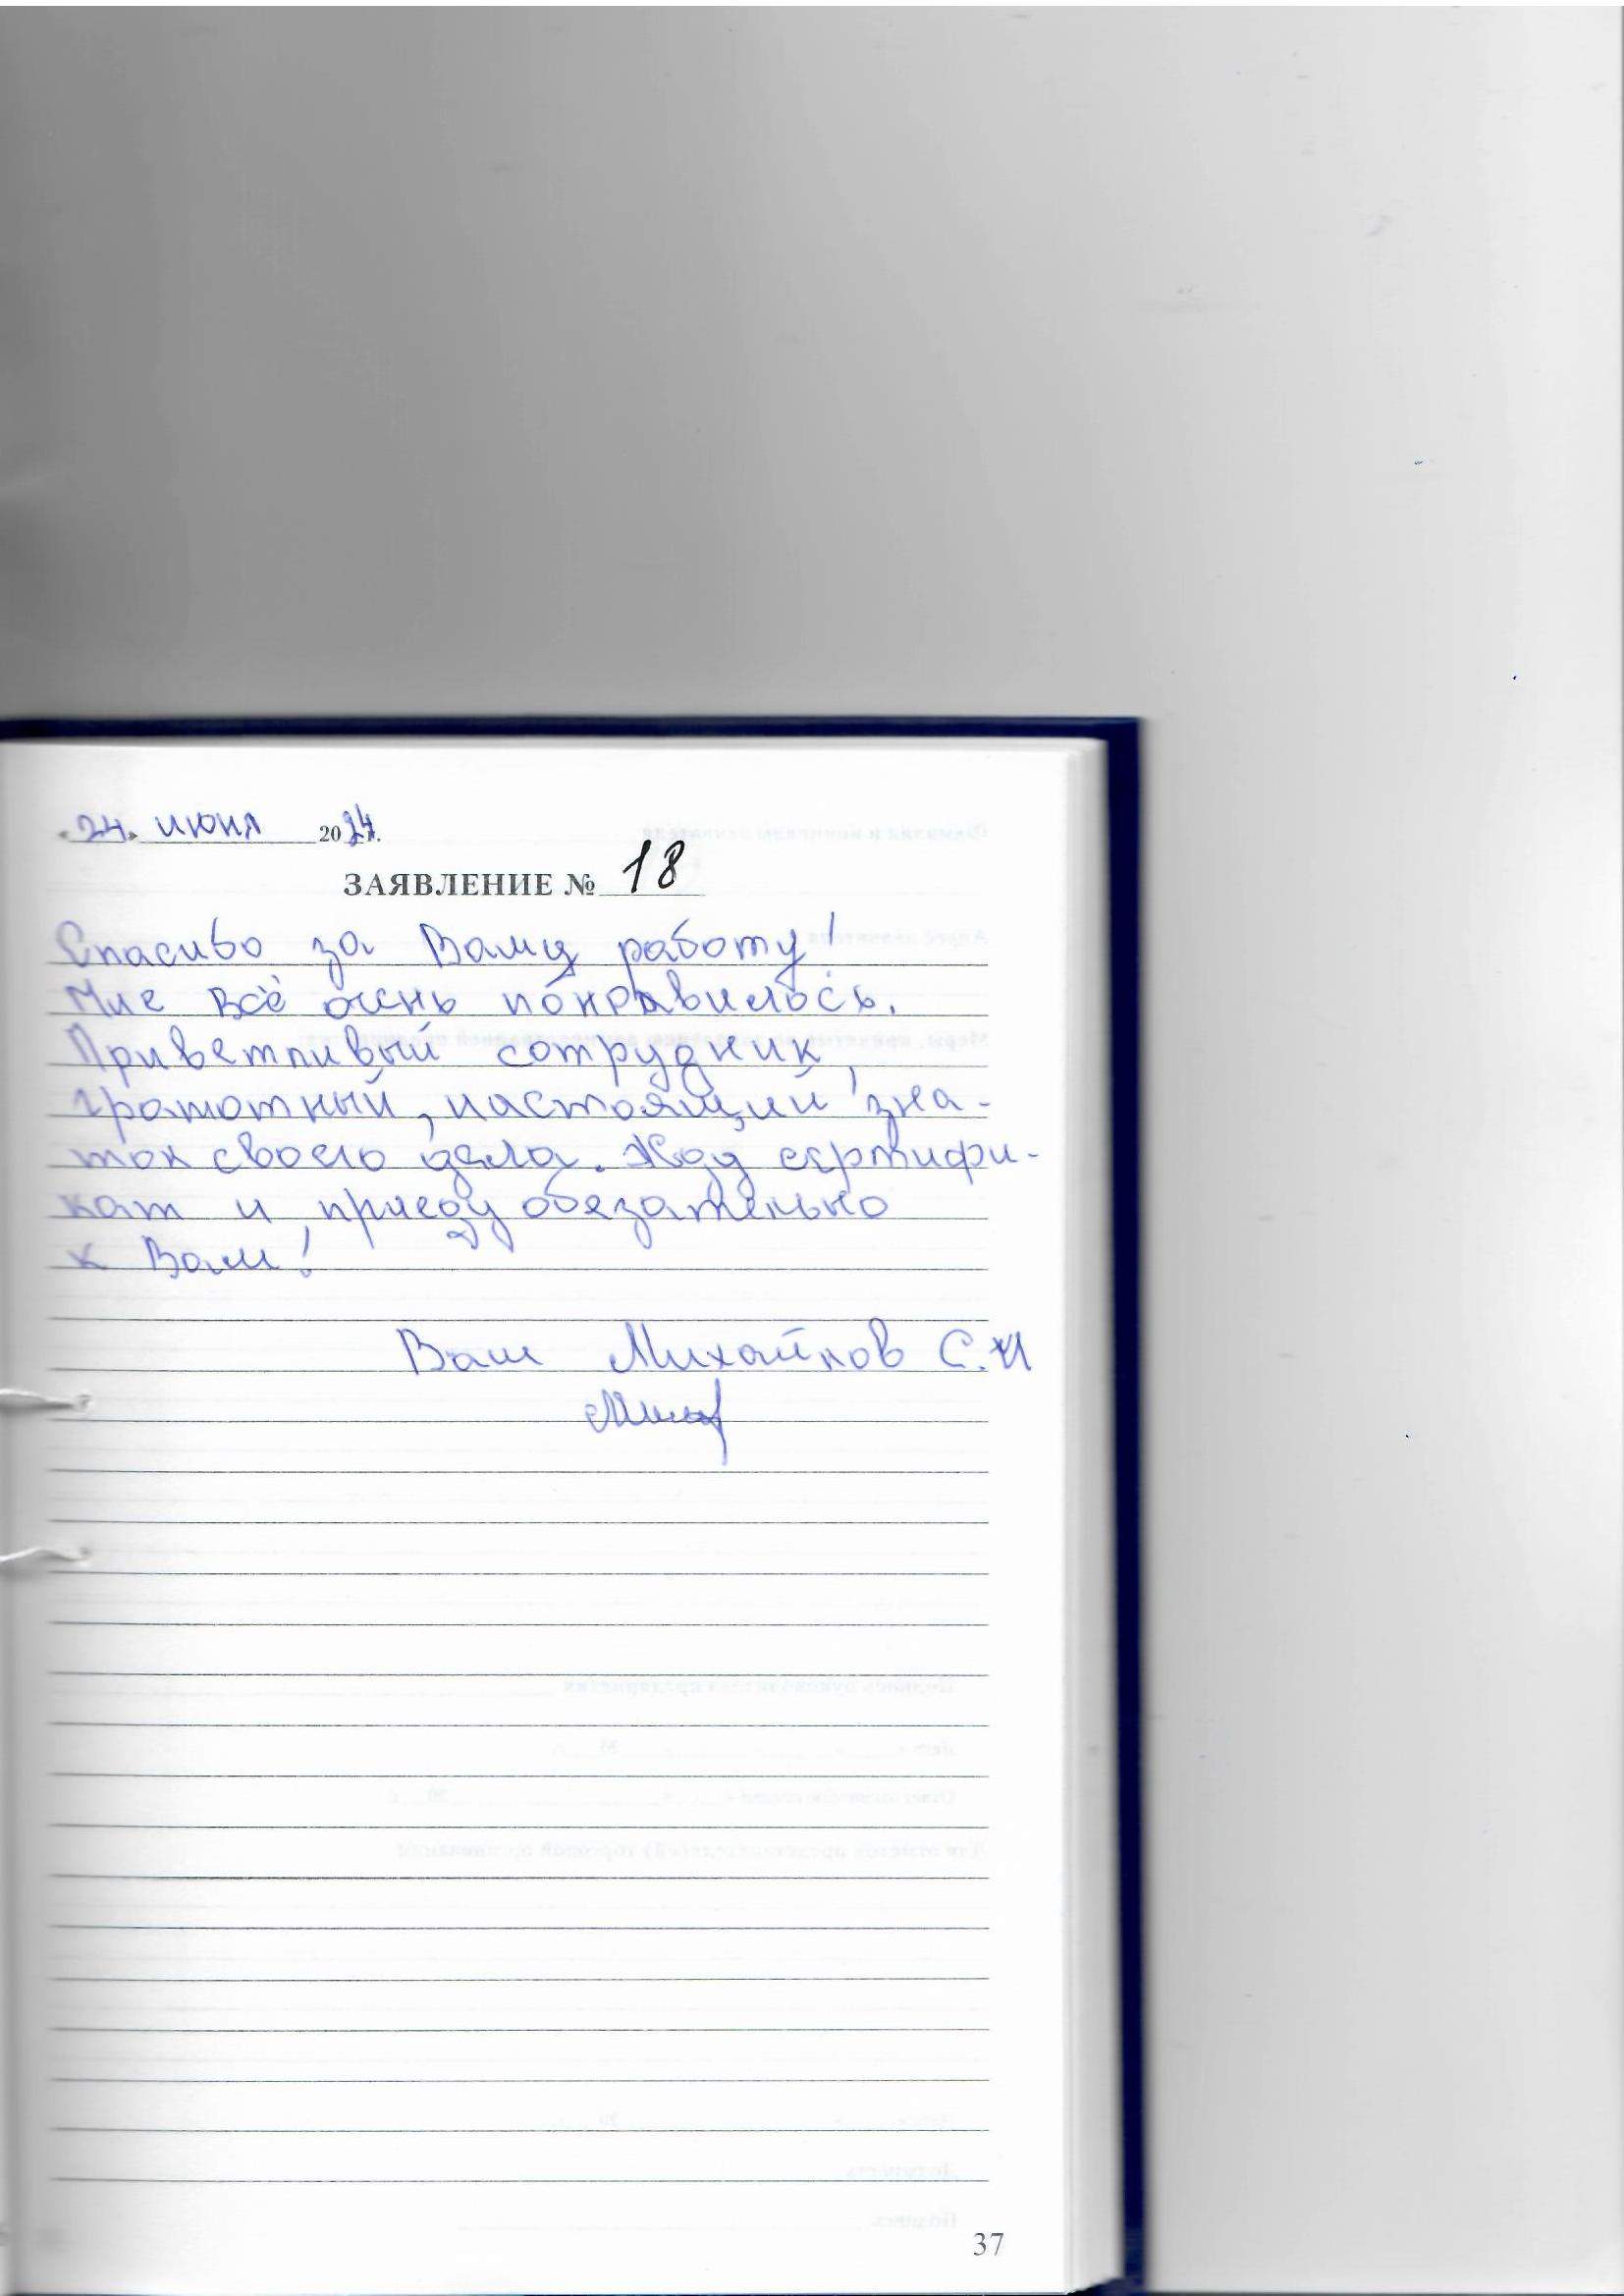 «24» июня 2024г.
ЗАЯВЛЕНИЕ № 18
Спасибо за Вашу работу!
Мне всё очень понравилось.
Приветливый сотрудник,
грамотный, настоящий зна-
ток своего дела. Жду сертифи-
кат и приеду обязательно
к Вам!
Ваш Михайлов С.И
37